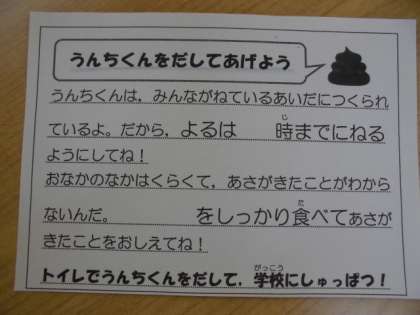 うんちくんをだしてあげよう
うんちくんは，みんながねているあいだにつくられ
ているよ。だから，よるは　　時までにねる
ようにしてね！
おなかのなかはくらくて，あさがきたことがわから
ないんだ。　　　　　をしっかり食べてあさが
きたことをおしえてね！
トイレでうんちくんをだして，学校にしゅっぱつ！